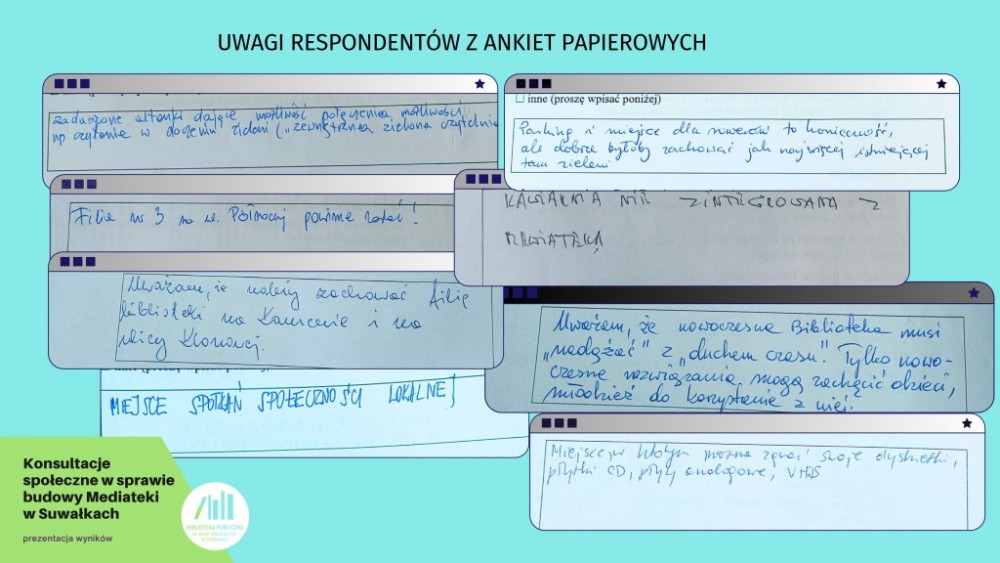 UWAGI RESPONDENTÓW Z ANKIET PAPIEROWYCH
zadaszone altanki dające możliwość połączenia możliwości
np czytania w otoczeniu zieleni („zewnętrzna zielona czytelnia
Filia nr 3 na ul. Północnej powinna zostać!
Uważam, że należy zachować filię
biblioteki na Kamenie i na
ulicy Klonowej.
MIEJSCE SPOTKAŃ SPOŁECZNOŚCI LOKALNEJ
inne (proszę wpisać poniżej)
Parking i miejsce dla rowerów to konieczność,
ale dobrze byłoby zachować jak najwięcej istniejącej
tam zieleni
KAWIARNIA NIE ZINTEGROWANA Z
MEDIATEKĄ
Uważam, że nowoczesna Biblioteka musi
„nadążać” z „duchem czasu”. Tylko nowo-
czesne rozwiązania mogą zachęcić dzieci,
młodzież do korzystania z niej.
Miejsce w którym można zgrać swoje dyskietki,
płytki CD, płyty analogowe, VHS
Konsultacje
społeczne w sprawie
budowy Mediateki
w Suwałkach
prezentacja wyników
BIBLIOTEKA PUBLICZNA